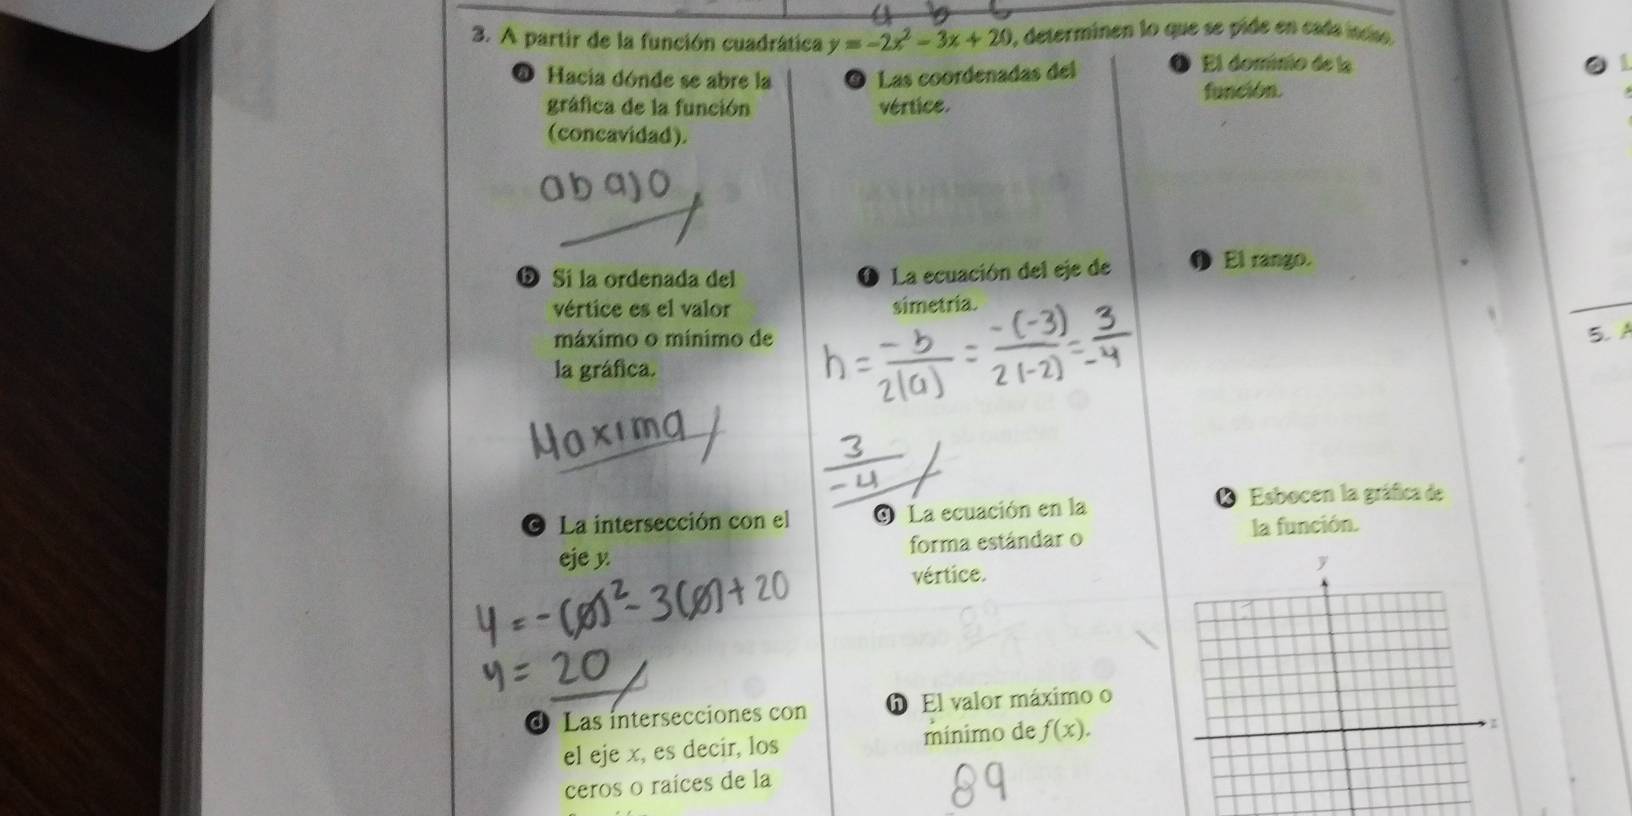 a b c
3. A partir de la función cuadrática y = -2x² - 3x + 20, determinen lo que se pide en cada inciso.
a Hacia dónde se abre la
gráfica de la función
(concavidad).
abajo
b Si la ordenada del
vértice es el valor
máximo o mínimo de
la gráfica.
Maxima
c La intersección con el
eje y.
y = -(0)² - 3(0) + 20
y = 20
d Las intersecciones con
el eje x, es decir, los
ceros o raíces de la
e Las coordenadas del
vértice.
f La ecuación del eje de
simetría.
h = -b/2(a) = -(-3)/2(-2) = 3/-4
3/-4
g La ecuación en la
forma estándar o
vértice.
h El valor máximo o
mínimo de f(x).
89
El dominio de la
función.
El rango.
k Esbocen la gráfica de
la función.
y
5. A